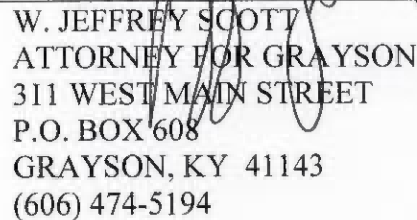 W. JEFFREY SCOTT
ATTORNEY FOR GRAYSON
311 WEST MAIN STREET
P.O. BOX 608
GRAYSON, KY 41143
(606) 474-5194